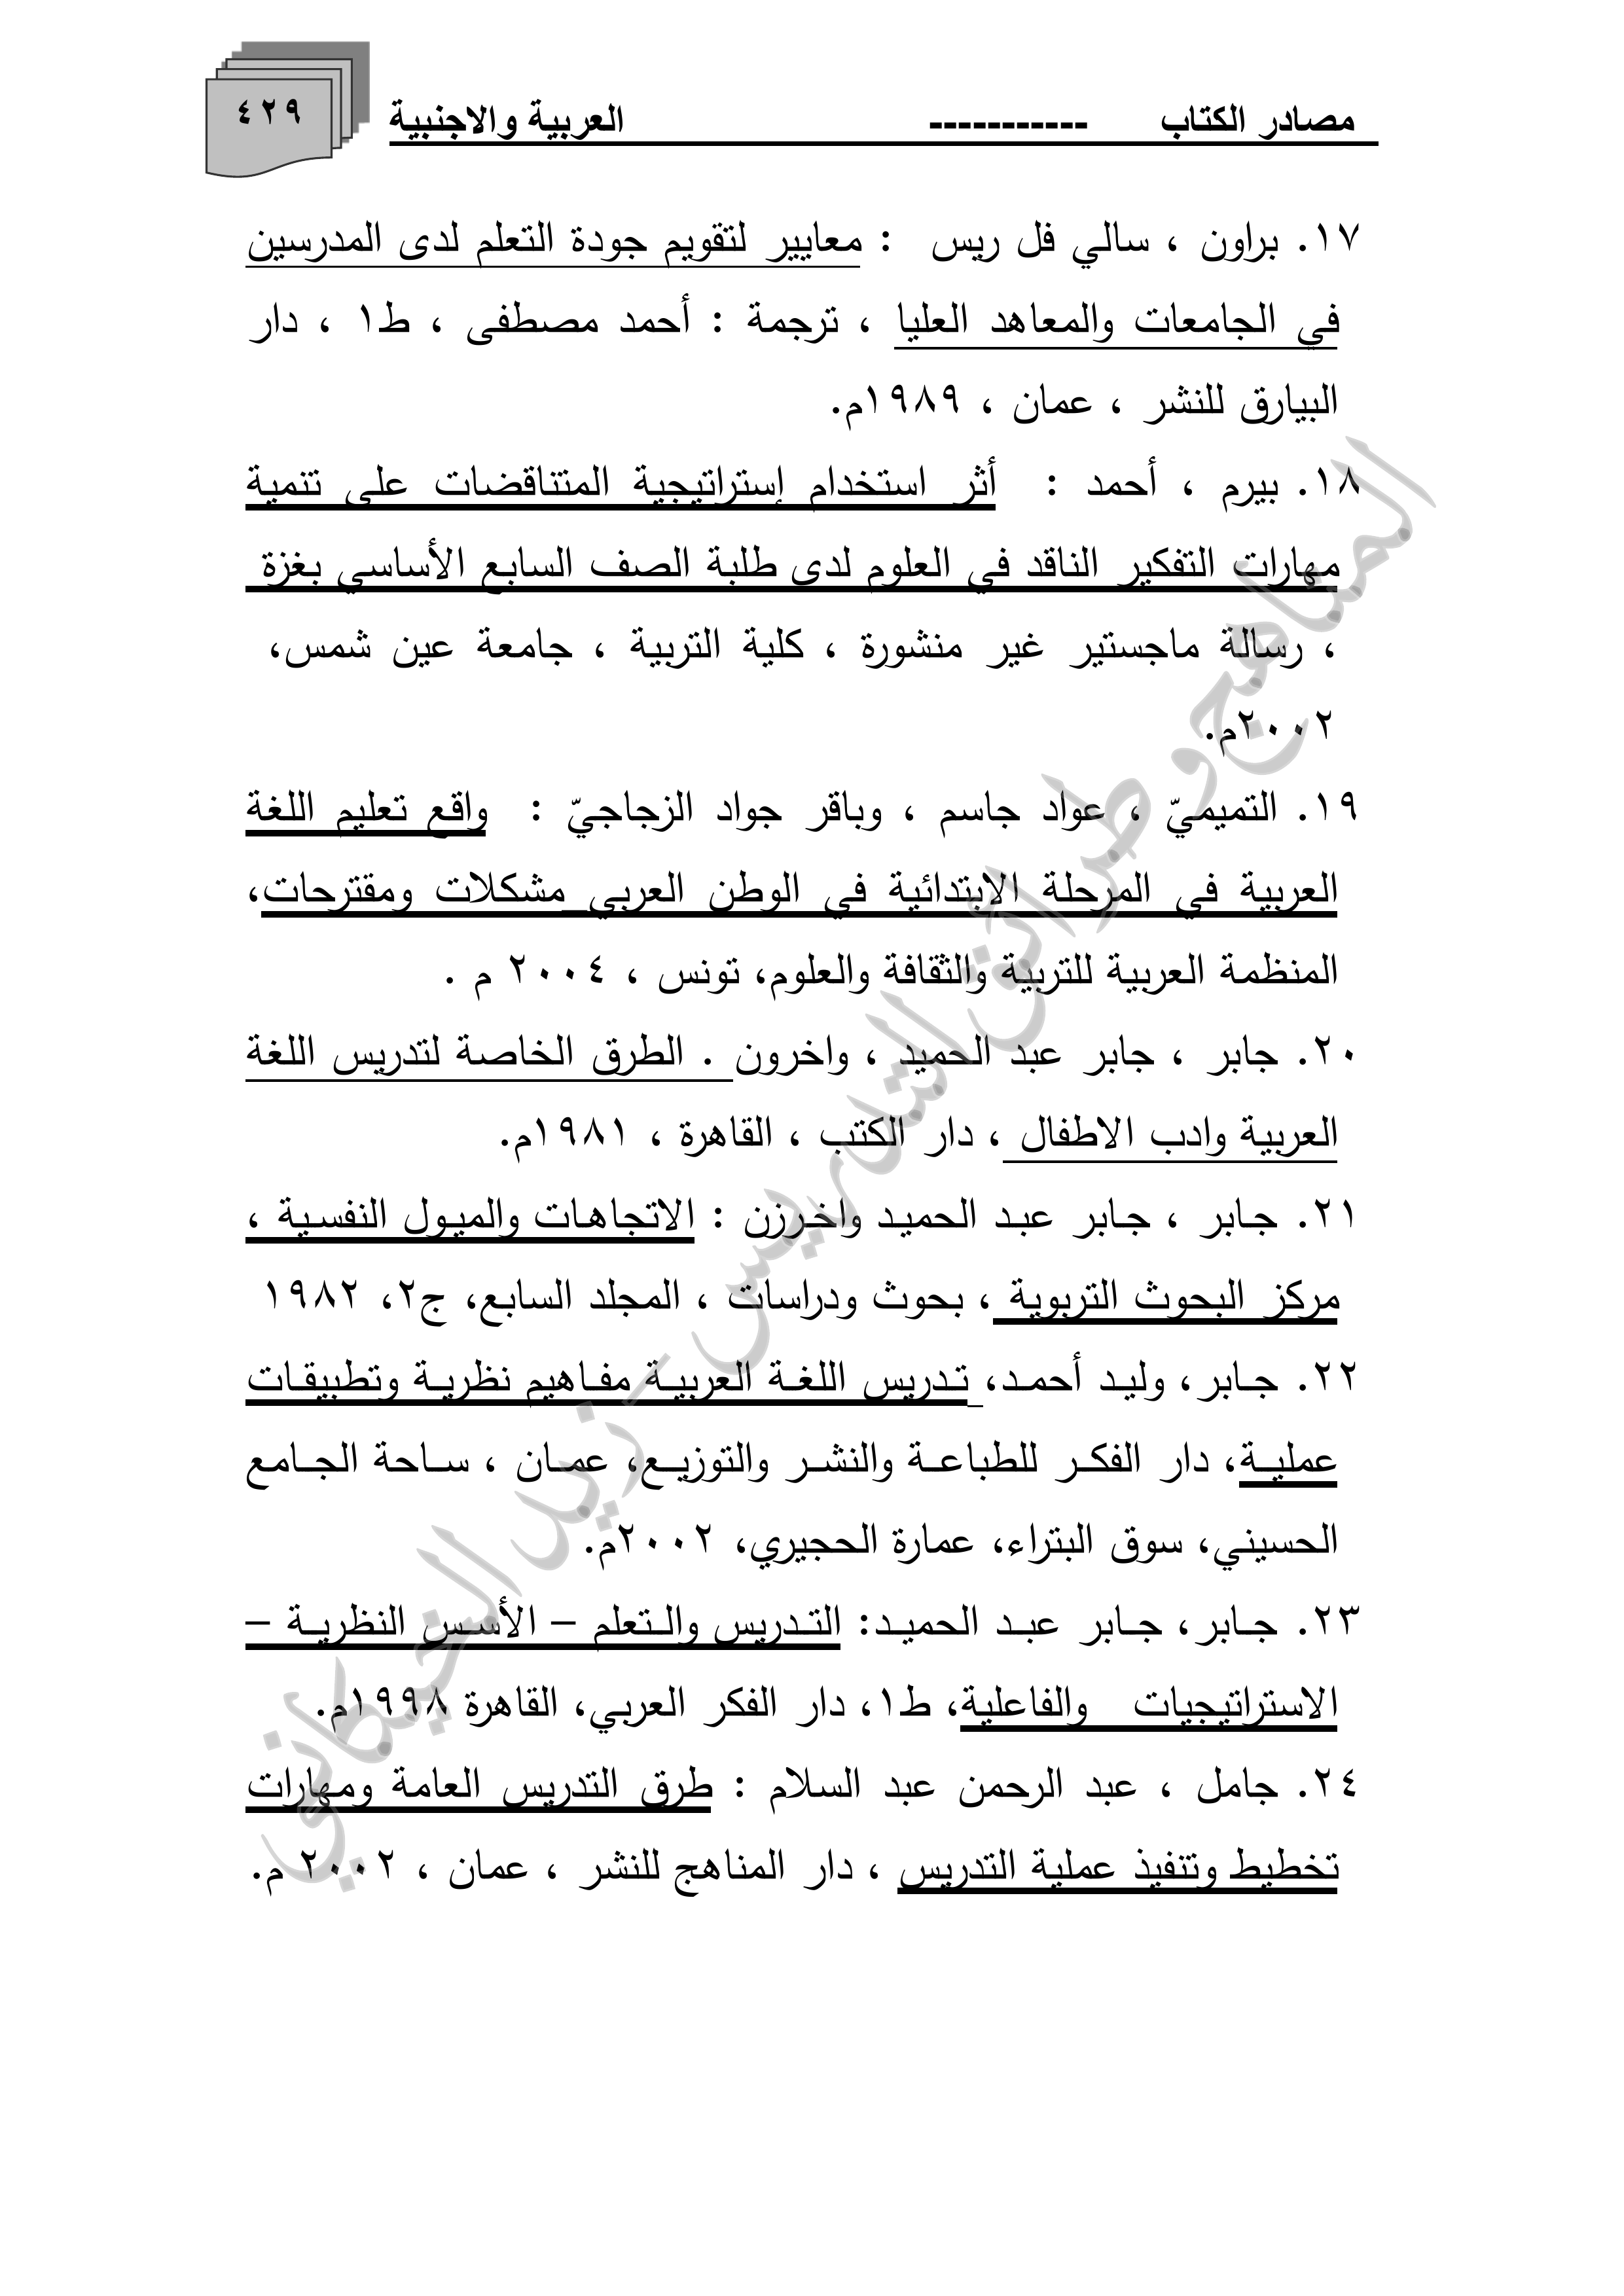 مصادر الكتاب ----------- العربية والاجنبية
٤٢٩
١٧. براون ، سالي فل ريس : معايير لتقويم جودة التعلم لدى المدرسين
في الجامعات والمعاهد العليا ، ترجمة : أحمد مصطفى ، ط١ ، دار
البيارق للنشر ، عمان ، ١٩٨٩م.
١٨. بيرم ، أحمد : أثر استخدام إستراتيجية المتناقضات على تنمية
مهارات التفكير الناقد في العلوم لدى طلبة الصف السابع الأساسي بغزة
، رسالة ماجستير غير منشورة ، كلية التربية ، جامعة عين شمس،
٢٠٠٢م.
١٩. التميميّ ، عواد جاسم ، وباقر جواد الزجاجيّ : واقع تعليم اللغة
العربية في المرحلة الابتدائية في الوطن العربي_مشكلات ومقترحات،
المنظمة العربية للتربية والثقافة والعلوم، تونس ، ٢٠٠٤ م .
٢٠. جابر ، جابر عبد الحميد ، واخرون . الطرق الخاصة لتدريس اللغة
العربية وادب الاطفال ، دار الكتب ، القاهرة ، ١٩٨١م.
٢١. جابر ، جابر عبد الحميد واخرزن : الاتجاهات والميول النفسية ،
مركز البحوث التربوية ، بحوث ودراسات ، المجلد السابع، ج٢، ١٩٨٢
٢٢. جابر، وليد أحمد، تدريس اللغة العربية مفاهيم نظرية وتطبيقات
عملية، دار الفكر للطباعة والنشر والتوزيع، عمان ، ساحة الجامع
الحسيني، سوق البتراء، عمارة الحجيري، ٢٠٠٢م.
٢٣. جابر، جابر عبد الحميد: التدريس والتعلم – الأسس النظرية –
الاستراتيجيات والفاعلية، ط١، دار الفكر العربي، القاهرة ١٩٩٨م.
٢٤. جامل ، عبد الرحمن عبد السلام : طرق التدريس العامة ومهارات
تخطيط وتنفيذ عملية التدريس ، دار المناهج للنشر ، عمان ، ٢٠٠٢ م.
المناهج وطرائق التدريس - زيد الخيكاني